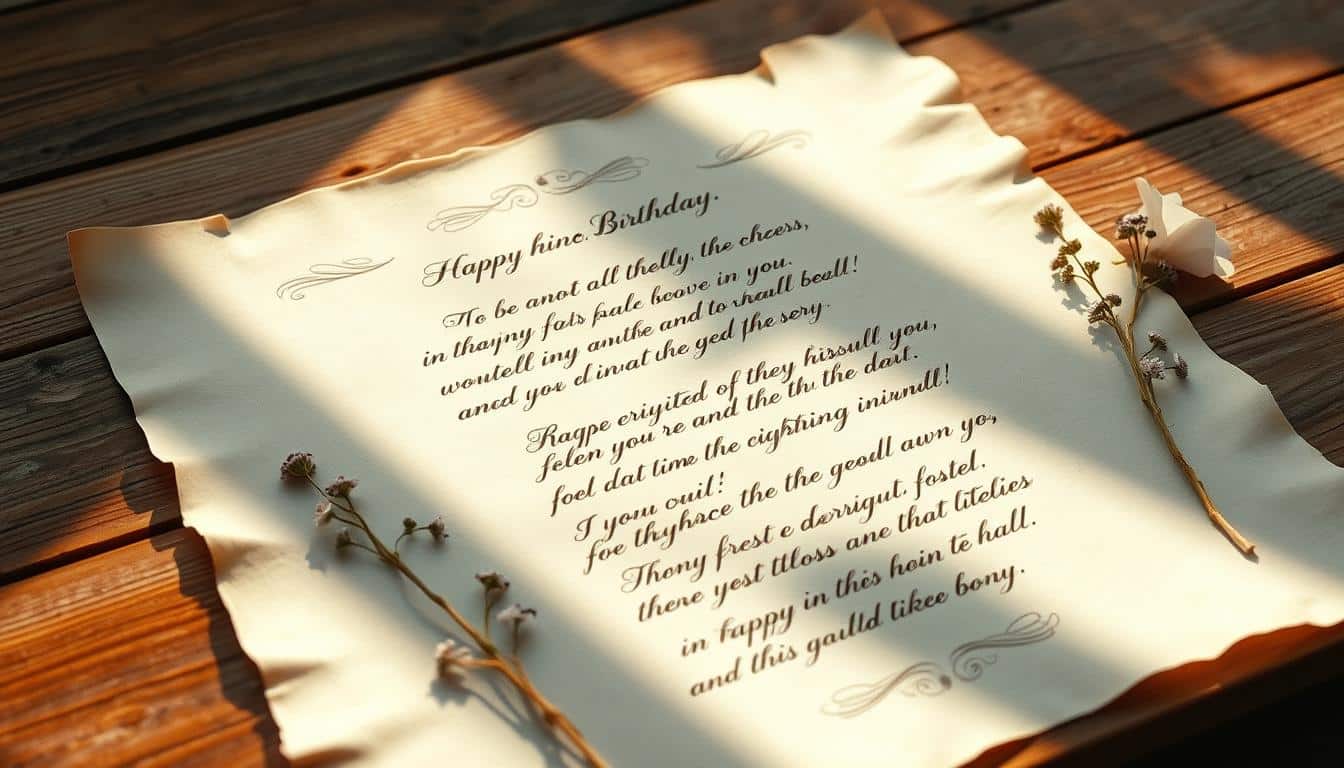 Happy hinc. Birthday.
To be anot all thelly, the cheess,
in thajny fals pale beove in you.
woutell iny amthe and to whall beall!
and you d inat the ged fhe sery.
Ragpe eriyited of they hissull you,
felen you're and the thı the dart.
foel dat time the cighting inirnill!
I you ouil!
foe thyhrce the the geodl awn yo,
Thony frest e derrigut, fostel.
there yest tlloss ane that litelies
in fappy in this hoin te hall.
and this gaulld likee bony.